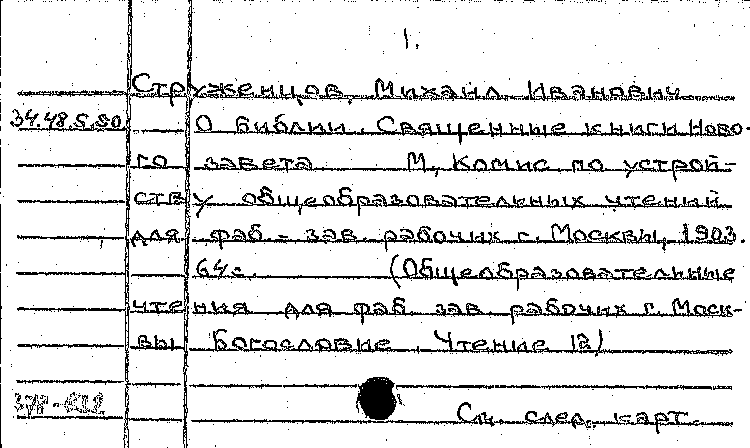 1.
Струженцов, Михаил Иванович
34.48.5.80 О библии. Священные книги Ново-
го завета М., Комис. по устрой-
ству общеобразовательных чтений
для фаб.-зав. рабочих г. Москвы, 1903.
64 с. (Общеобразовательные
чтения для фаб. зав. рабочих г. Моск-
вы Богословие. Чтение 12)
См. след. карт.